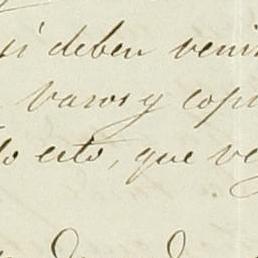 si deben venir
vasos y copi
lo esto, que ve